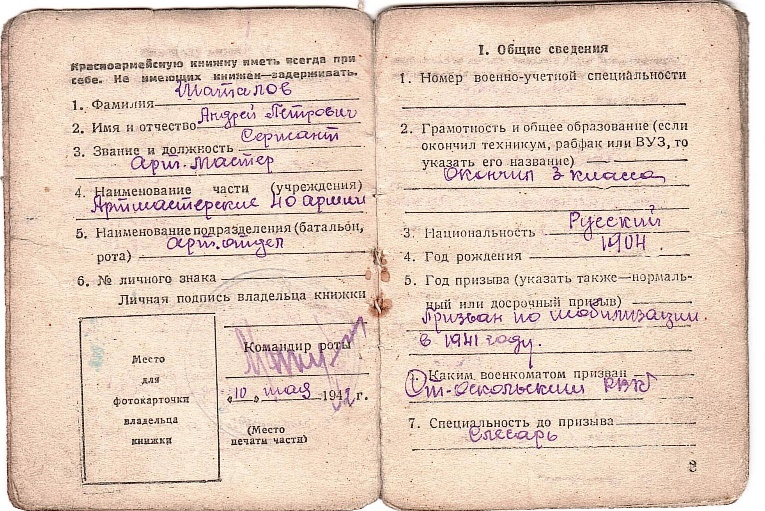 Красноармейскую книжку иметь всегда при
себе. Не имеющих книжек—задерживать.
1. Фамилия Шаталов
2. Имя и отчество Андрей Петрович
3. Звание и должность Сержант
Арт. Мастер
4. Наименование части (учреждения)
Артмастерские 40 армии
5. Наименование подразделения (батальон,
рота) Арт. отдел
6. № личного знака
Личная подпись владельца книжки
Командир роты
„10„ мая 1942 г.
(Место
печати части)
Место
для
фотокарточки
владельца
книжки
I. Общие сведения
1. Номер военно-учетной специальности
2. Грамотность и общее образование (если
окончил техникум, рабфак или ВУЗ, то
указать его название)
Окончил 3 класса
3. Национальность Русский
4. Год рождения 1904
5. Год призыва (указать также—нормаль-
ный или досрочный призыв)
Призван по мобилизации
в 1941 году.
6. Каким военкоматом призван
Ст-Оскольский РВК
7. Специальность до призыва
Слесарь